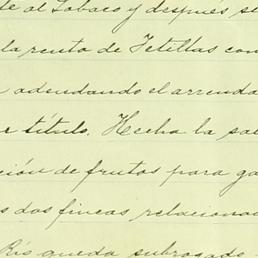 te al Tobaco y después se
la renta de Tetillas con
adendando el arrenda
r título. Hecha la sal
ción de frutos para ga
s dos fincas relaciona
Rís queda subrogado